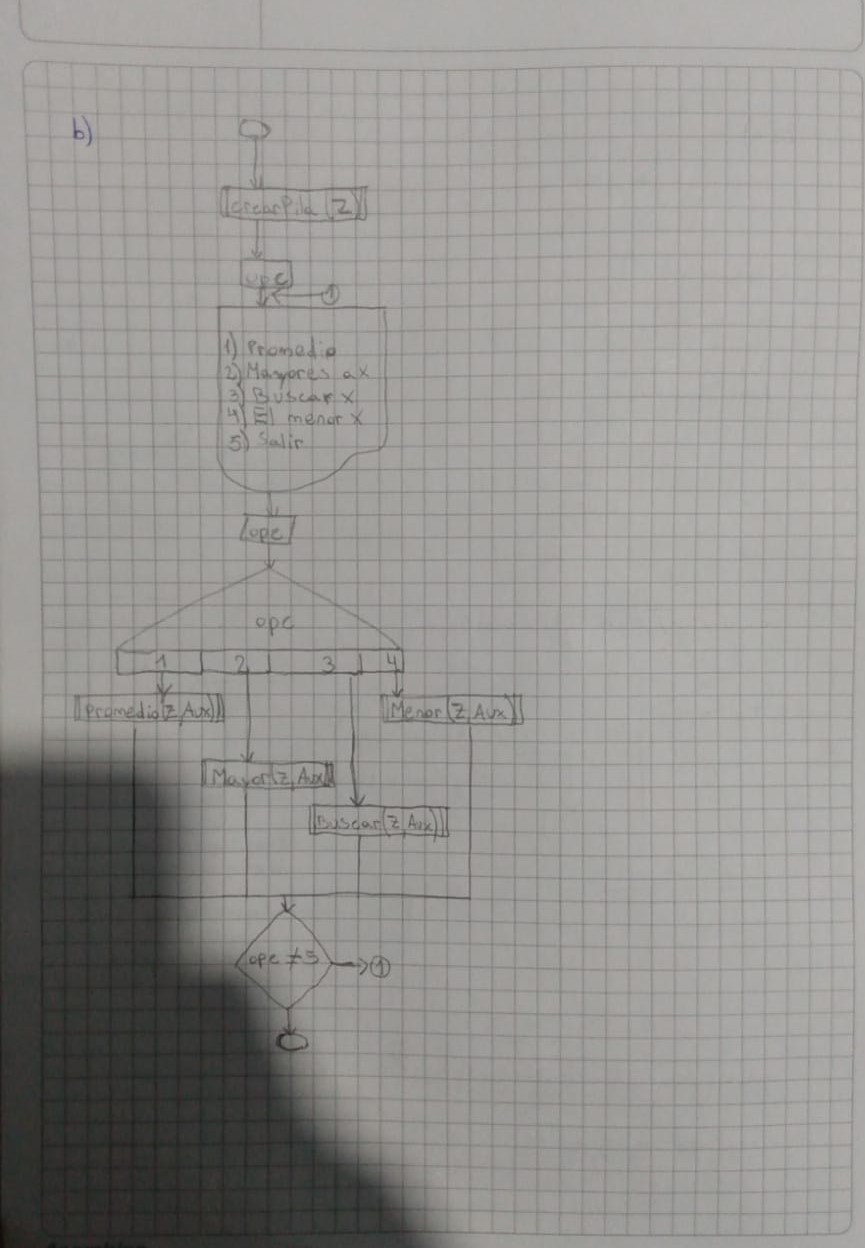 b)
crearPila (Z)
opc
1
1) Promedio
2) Mayores a x
3) Buscar x
4) El menor x
5) Salir
opc
opc
1 2 3 4
Promedio(Z,Aux) Menor(Z,Aux)
Mayor(Z,Aux)
Buscar(Z,Aux)
opc ≠ 5 1